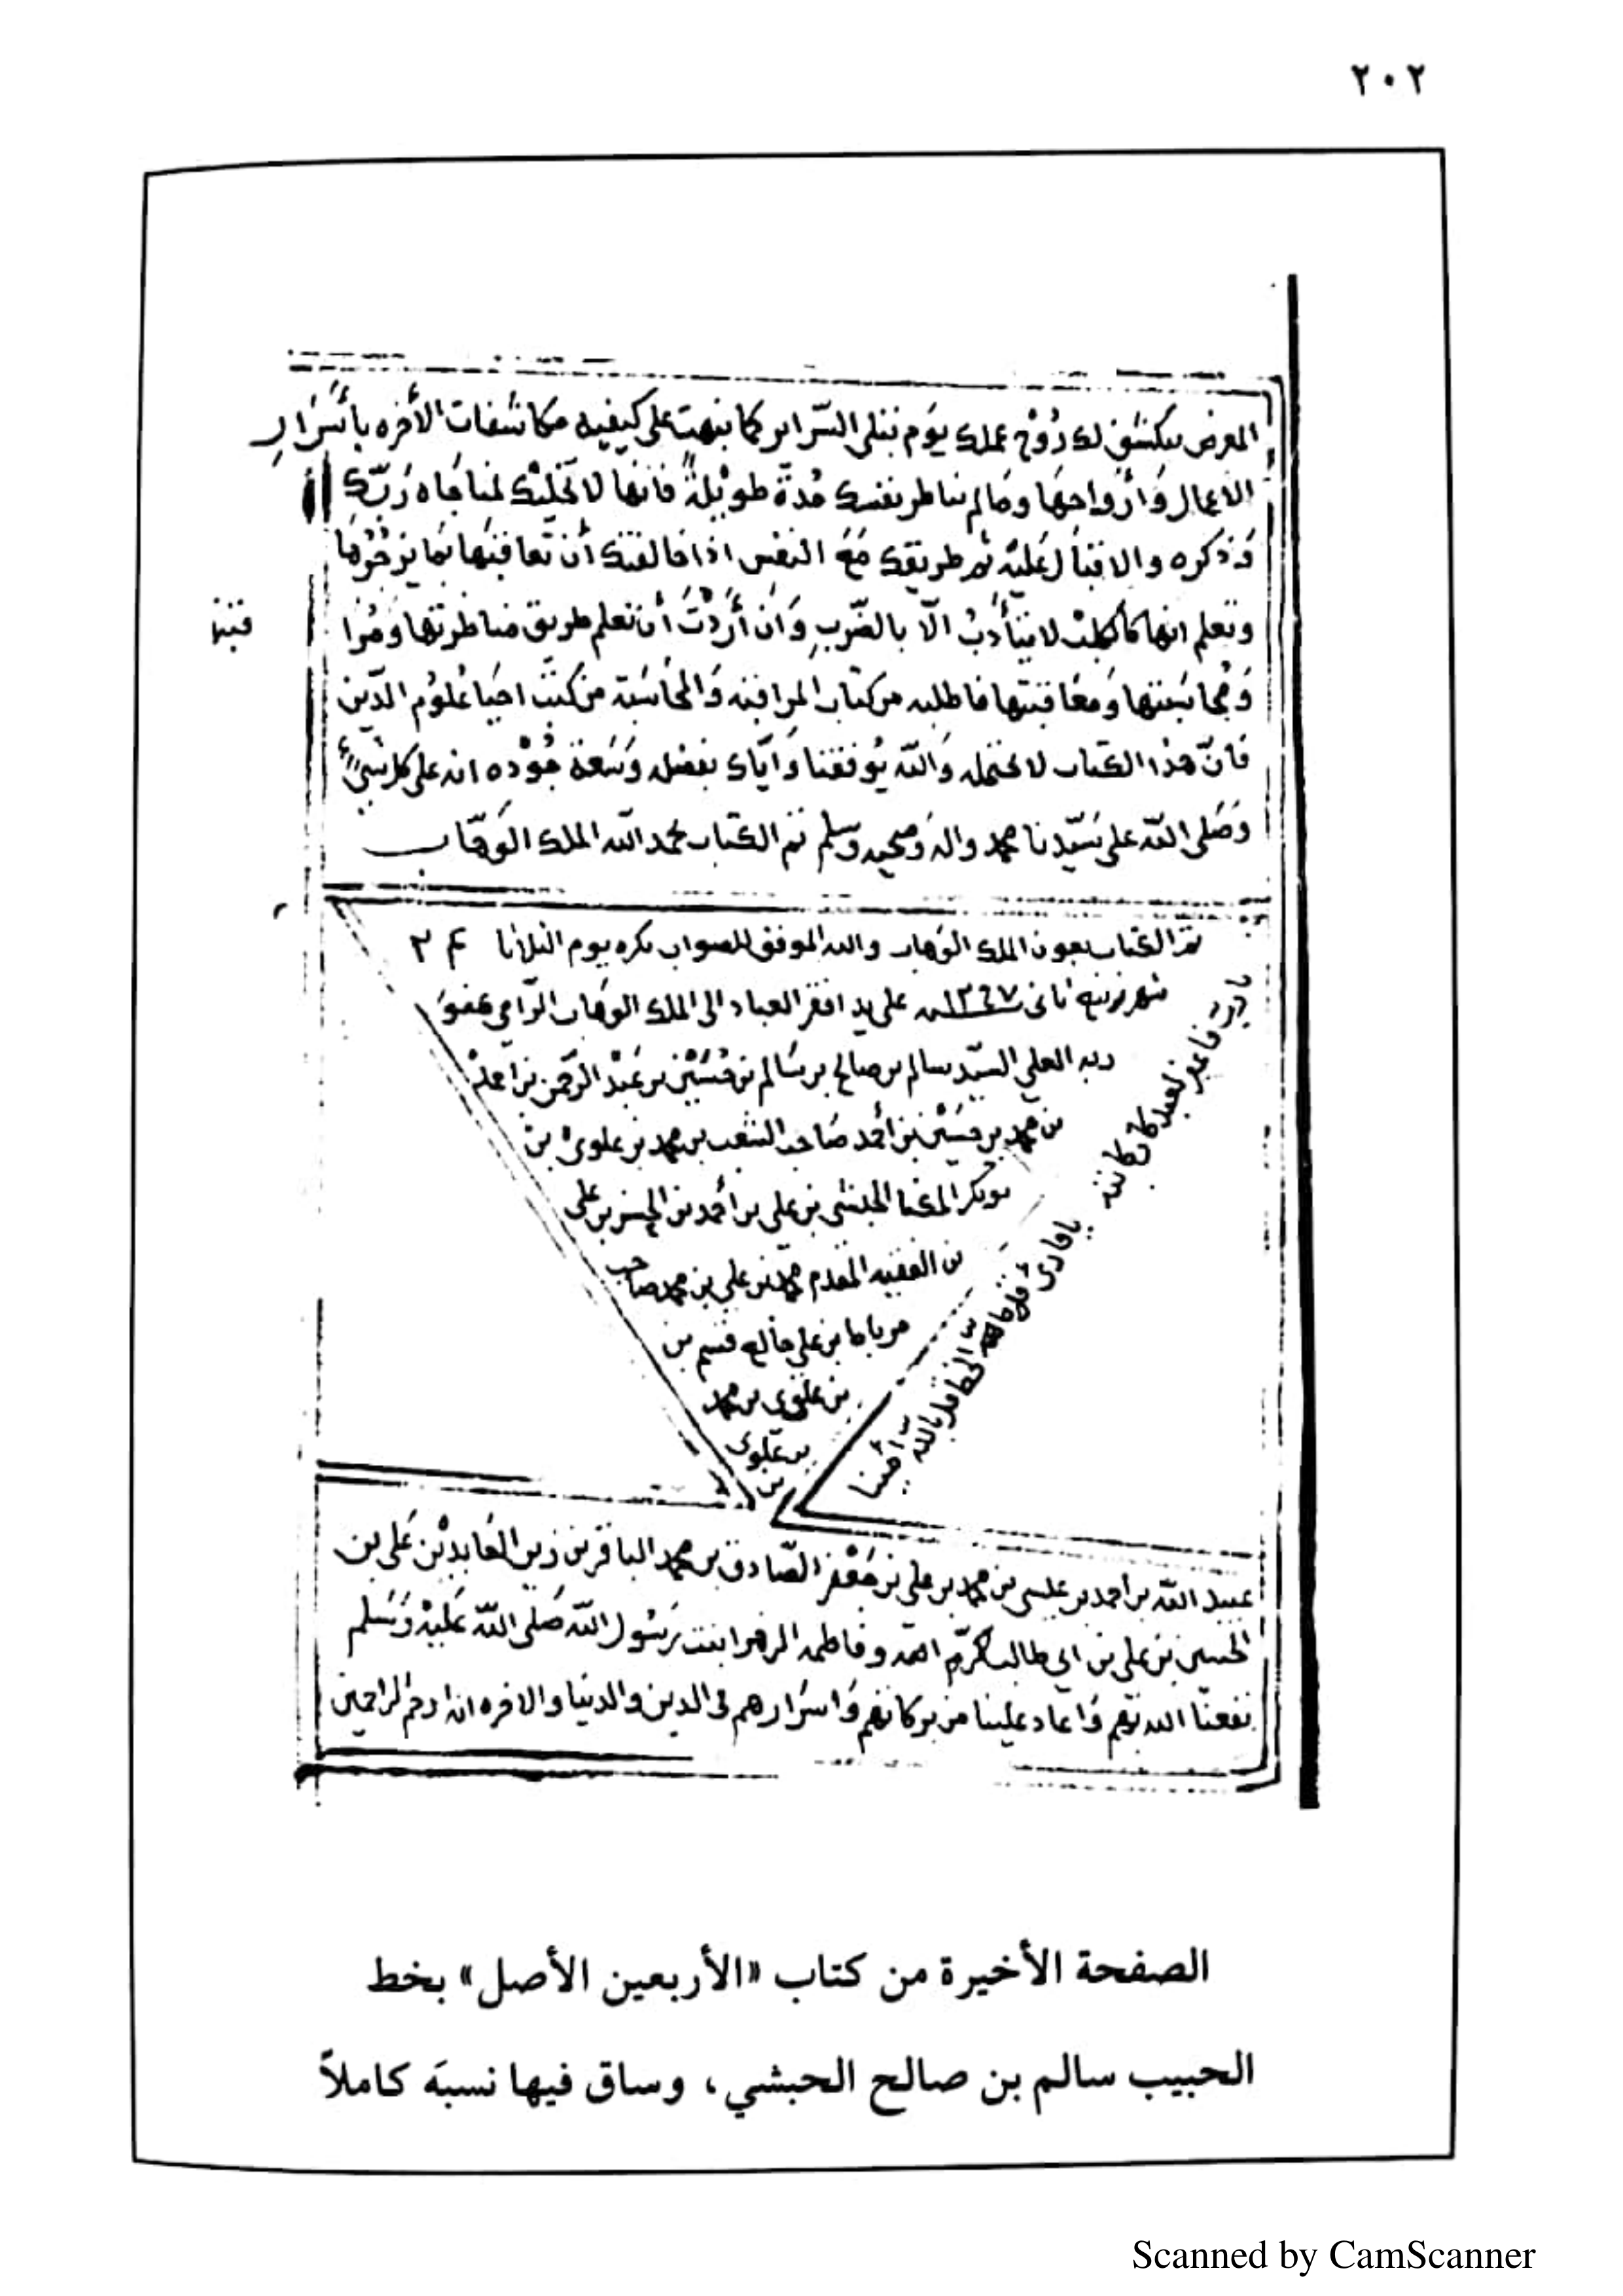 ٢٠٢
المعرض سكشف لك روح عملك يوم تبلى السراير كما نبهت على كيفيه مكاشفات الأخره بأسرار
الاعمال وأرواحها ومالم تناظر نفسك مدة طويلة فانها لا تخليك لمناجاه ربك
وذكره والاقبال عليه ثم طريقك مع النفس اذا خالفتك أن تعاقبها بما يزجرها
وتعلم انها كالكلب لا يتأدب الا بالضرب وان أردت أن تعلم طريق مناظرتها ومرا
قبتها
ومحاسبتها ومعاقبتها فاطلبه من كتاب المراقبه والمحاسبة من كتب احيا علوم الدين
فان هذا الكتاب لا يحتمله والله يوفقنا واياك بفضله وسعة جوده انه على كل شي
وصلى الله على سيدنا محمد واله وصحبه وسلم تم الكتاب بحمد الله الملك الوهاب
تم الكتاب بعون الملك الوهاب والله الموفق للصواب بكره يوم الثلاثا ٢
شهر ربيع ثاني على يد افقر العباد الى الملك الوهاب الراجي عفو
ربه العلي السيد سالم بن صالح بن سالم بن حسين بن عبد الرحمن بن احمد
بن محمد بن حسين بن أحمد صاحب الشعب بن محمد بن علوي بن
بوبكر الحبشي بن علي بن أحمد بن محمد بن علي
بن الفقيه المقدم محمد بن علي بن محمد صاحب
مرباط بن علي خالع قسم بن
بن علوي بن محمد
بن علوي
بن
عبيد الله بن أحمد بن عيسى بن محمد بن علي بن جعفر الصادق بن محمد الباقر بن زين العابدين علي بن
الحسين بن علي بن ابي طالب كرم الله وفاطمه الزهرا بنت رسول الله صلى الله عليه وسلم
نفعنا الله بهم واعاد علينا من بركاتهم واسرارهم في الدين والدنيا والاخره انه ارحم الراحمين
يارب فاغفر لعبد كان كاتبه
يا قارئ بالله آمينا
الصفحة الأخيرة من كتاب «الأربعين الأصل» بخط
الحبيب سالم بن صالح الحبشي، وساق فيها نسبَه كاملاً
Scanned by CamScanner